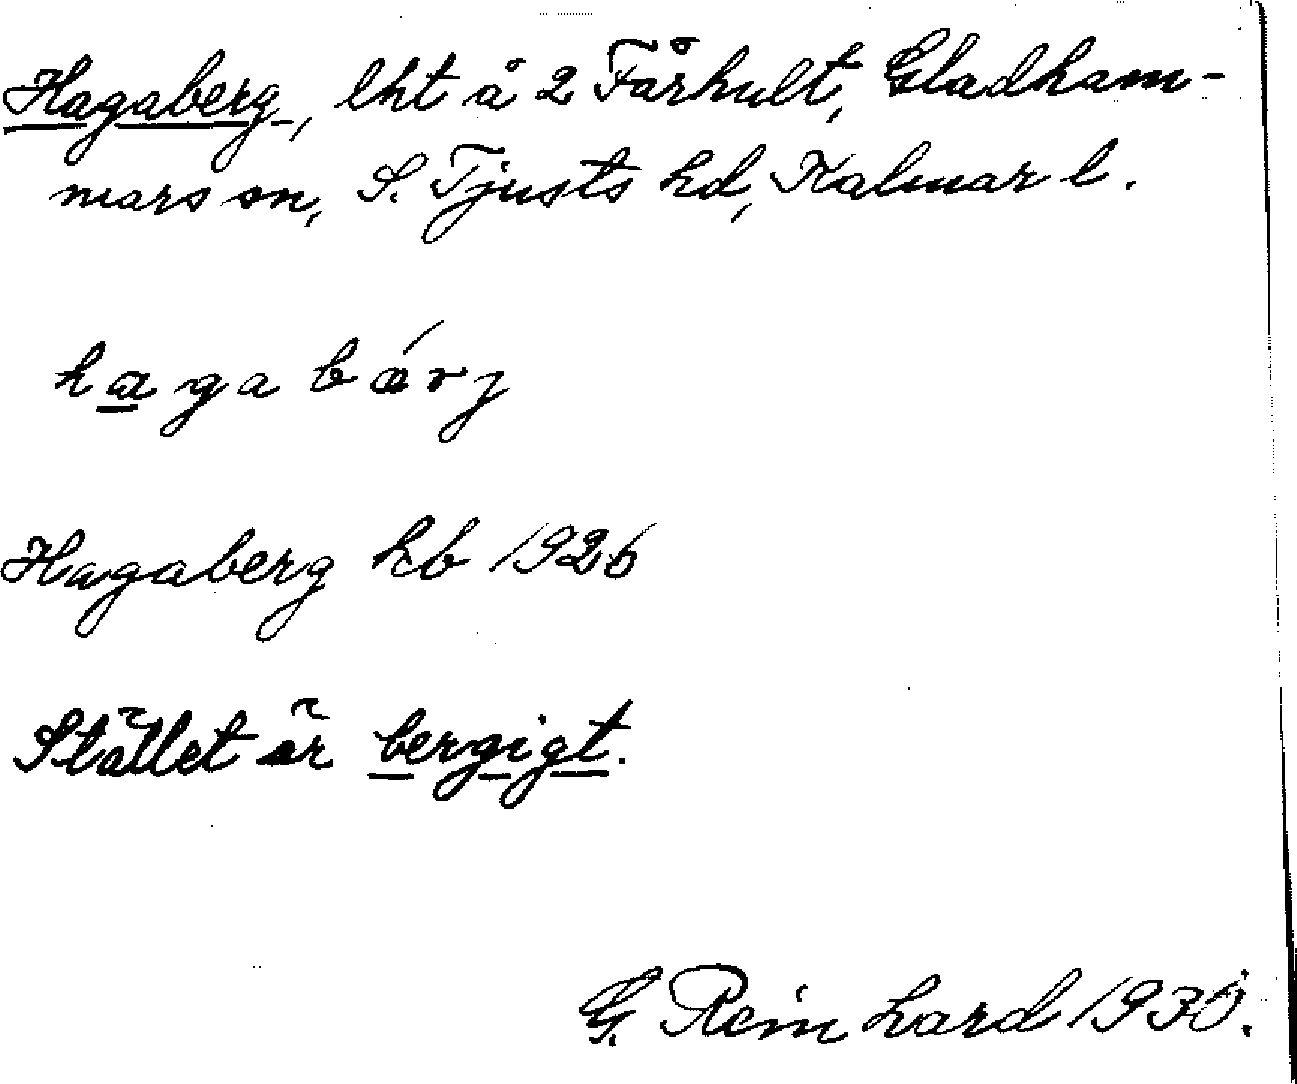 Hagaberg, lht å 2 Fårhult, Gladham-
mars sn, S. Tjusts hd, Kalmar l.
hagabǽrj
Hagaberg kb 1926
Stället är bergigt.
G. Reinhard 1930.